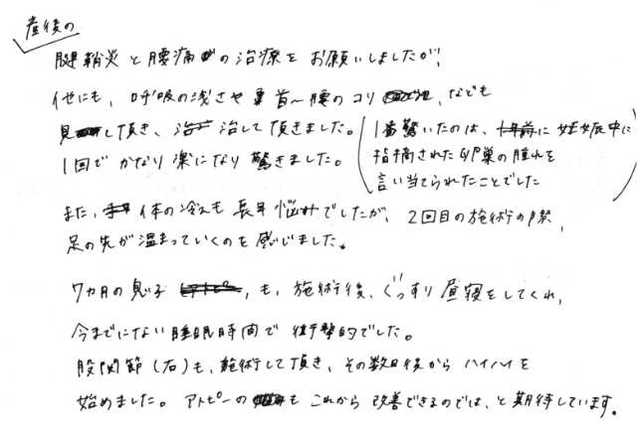 産後の
腱鞘炎と腰痛の治療をお願いしましたが、
他にも、呼吸の浅さや首〜腰のコリ、なども
見て頂き、治して頂きました。(1番驚いたのは、妊娠中に
1回でかなり楽になり驚きました。
指摘された卵巣の腫れを
言い当てられたことでした)
また、体の冷えも長年悩みでしたが、2回目の施術の際、
足の先が温まっていくのを感じました。
7カ月の息子も、施術後、ぐっすり昼寝をしてくれ、
今までにない睡眠時間で衝撃的でした。
股関節(右)も、施術して頂き、その数日後からハイハイを
始めました。アトピーのもこれから改善できるのでは、と期待しています。